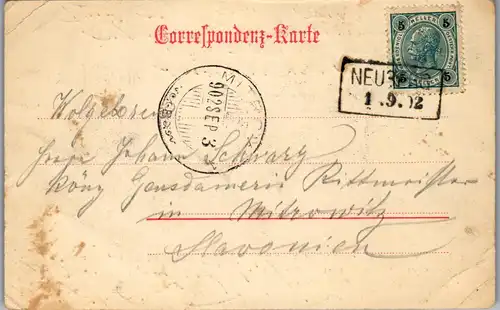 Correspondenz-Karte
5 HELLER 5
NEU
1.9.02
902 SEP 3
Wolgeboren
Johann Schwarz
Köng Gensdamerie Rittmeister
in Mitrowitz
Slavonien